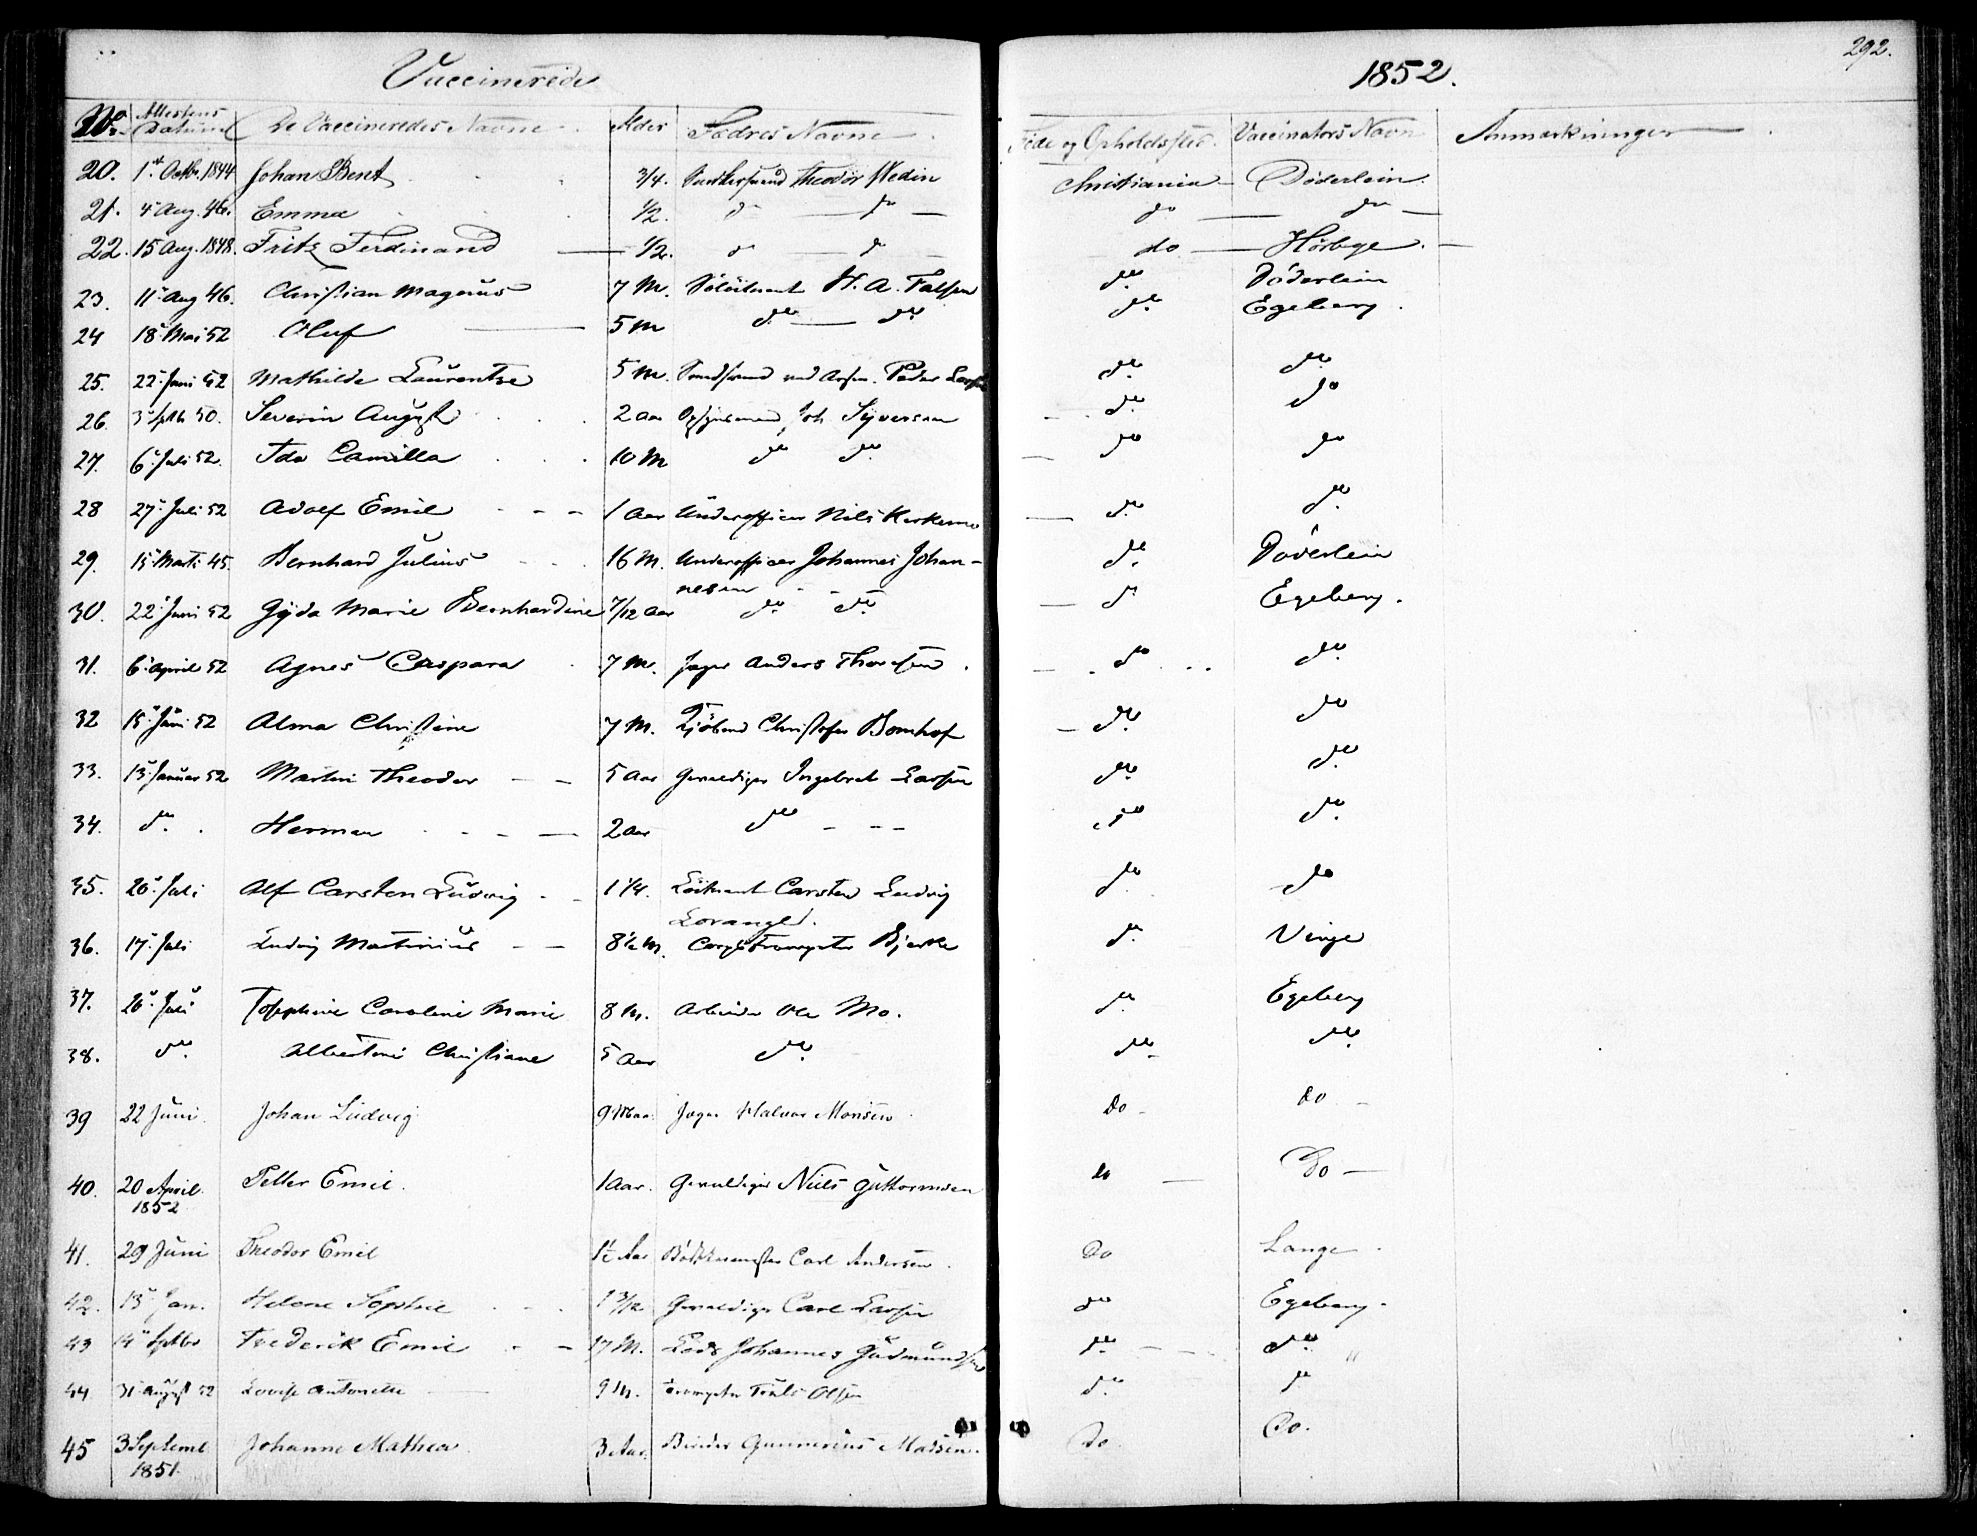 Vaccinerede 1852. 292.
No Attestens Datum De Vaccineredes Navne Alder Fædres Navne Føde og Opholdssted. Vaccinators Navn Anmærkninger
20. 1st Octbr. 1844 Johan Bent 3/4. Theodor Wedin Christiania Döderlein.
21. 4 Aug. 46. Emma 1/2. do do do do
22. 15 Aug. 1848. Fritz Ferdinand 1/2. do do do Hörbye.
23. 11 Aug 46. Christian Magnus 7 M. H. A. Falsen do Döderlein
24 18 Mai 52 Oluf 5 M do do do Egeberg.
25. 22 Juni 52 Mathilde Laurentze 5 M. Peder Larsen do do
26. 3 Sptb 50. Severin August 2 Aar Opsynsmand Joh. Syversen do do
27. 6 Juli 52. Ida Camilla 10 M do do do do
28 27 Juli 52 Adolf Emil 1 Aar Underofficer Nils do do
29. 15 Marti 45. Bernhard Julius 16 M. Underofficer Johannes Johan-
nesen do Döderlein
30. 22 Juni 52 Gyda Marie Bernhardine 7/12 Aar do do do Egeberg.
31. 6 April 52 Agnes Caspara 7 M. Jæger Anders Thoresen. do do
32 15 Juni 52 Alma Christine 7 M. Christofer Bomhof do do
33. 13 Januar 52 Martin Theodor 5 Aar Gevaldiger Ingebret Larsen do do
34. do. Herman 2 Aar do do do
35. 20 Juli Alf Carsten Ludvig 1 1/4. Löitnant Carsten Ludvig
Lorange. do do
36. 17 Juli Ludvig Martinius 8 1/2 M. Corpstrompeter Bjerke do Vinge
37. 20 Juli Josephine Caroline Marie 8 M. Arbeider Ole Mo. do Egeberg
38. do. Albertine Christiane 5 Aar do do do
39 22 Juni. Johan Ludvig 9 Maa. Jæger Halvor Monsen. Do Do
40. 20 April.
1852 Petter Emil. 1 Aar. Gevaldiger Niels Guttormsen do Do
41. 29 Juni Theodor Emil 1 1/2 Aar Bödkermester Carl Andersen. Do Lange.
42. 13 Jan. Helene Sophie 1 3/12 Gevaldiger Carl Larsen do Egeberg.
43 14 Septbr Frederik Emil 17 M. Lods Johannes Gudmundsen do do
44. 31 August 52 Lovise Antonette 9 M. Trompeter Truls Olsen do do
45 3 Septemb
1851. Johanne Mathea 3 Aar. Gunnerius Madsen. Do Do.